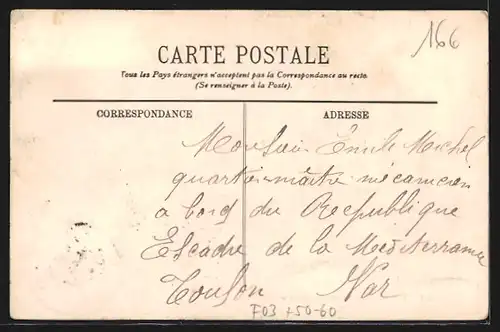 166
CARTE POSTALE
Tous les Pays étrangers n'acceptent pas la Correspondance au recto.
(Se renseigner à la Poste).
CORRESPONDANCE
ADRESSE
Monsieur Emile Michel
quartier-maître mécanicien
a bord du République
Escadre de la Mediterranée
Toulon Var
F03 +50-60